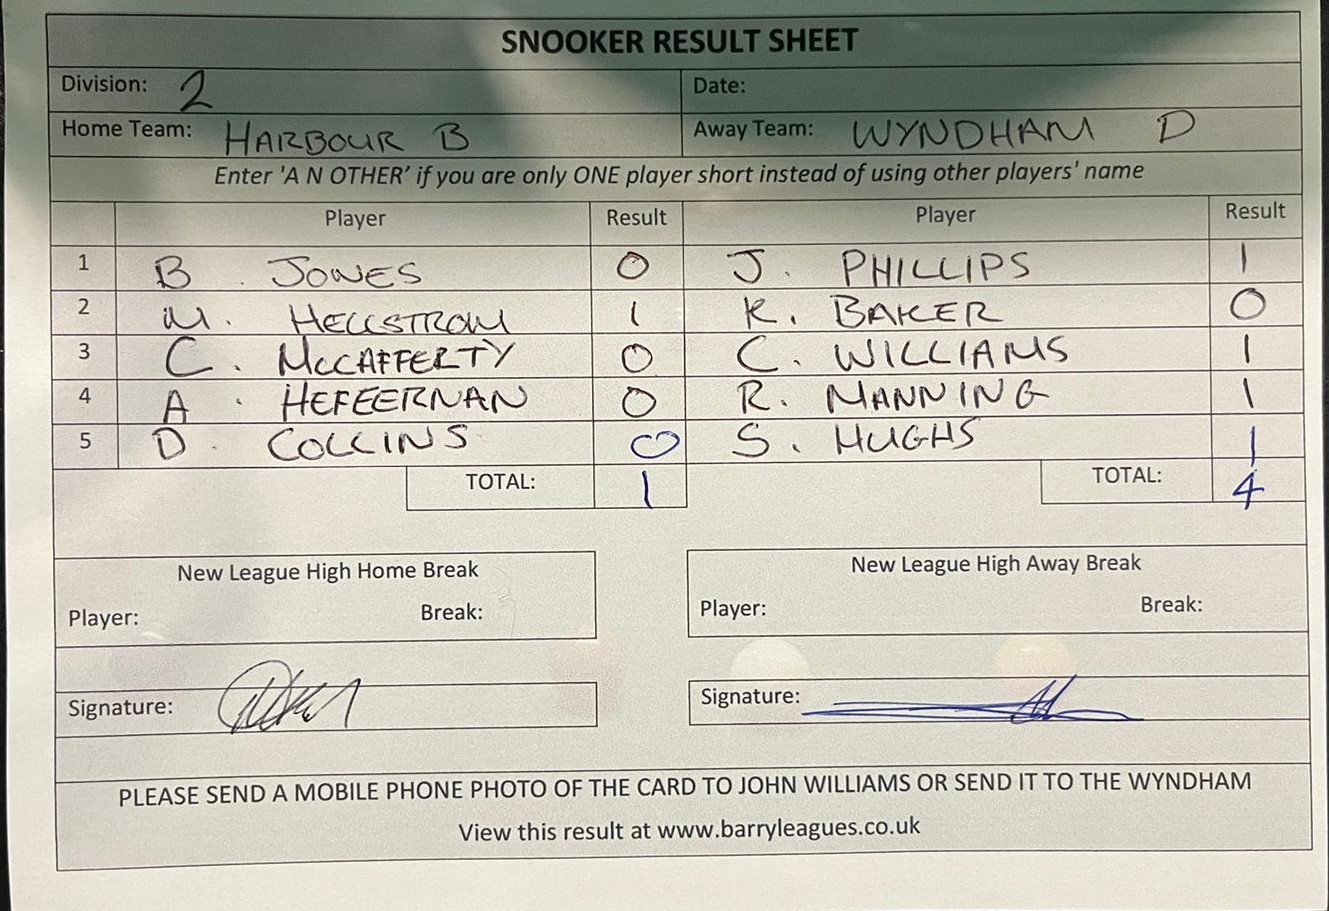 SNOOKER RESULT SHEET
Division: 2 Date:
Home Team: HARBOUR B Away Team: WYNDHAM D
Enter 'A N OTHER' if you are only ONE player short instead of using other players' name
Player Result Player Result
1 B. JONES 0 J. PHILLIPS 1
2 M. HELLSTROM 1 K. BAKER 0
3 C. MCCAFFERTY 0 C. WILLIAMS 1
4 A. HEFEERNAN 0 R. MANNING 1
5 D. COLLINS 0 S. HUGHS 1
TOTAL: 1 TOTAL: 4
New League High Home Break New League High Away Break
Player: Break: Player: Break:
Signature: Signature:
PLEASE SEND A MOBILE PHONE PHOTO OF THE CARD TO JOHN WILLIAMS OR SEND IT TO THE WYNDHAM
View this result at www.barryleagues.co.uk